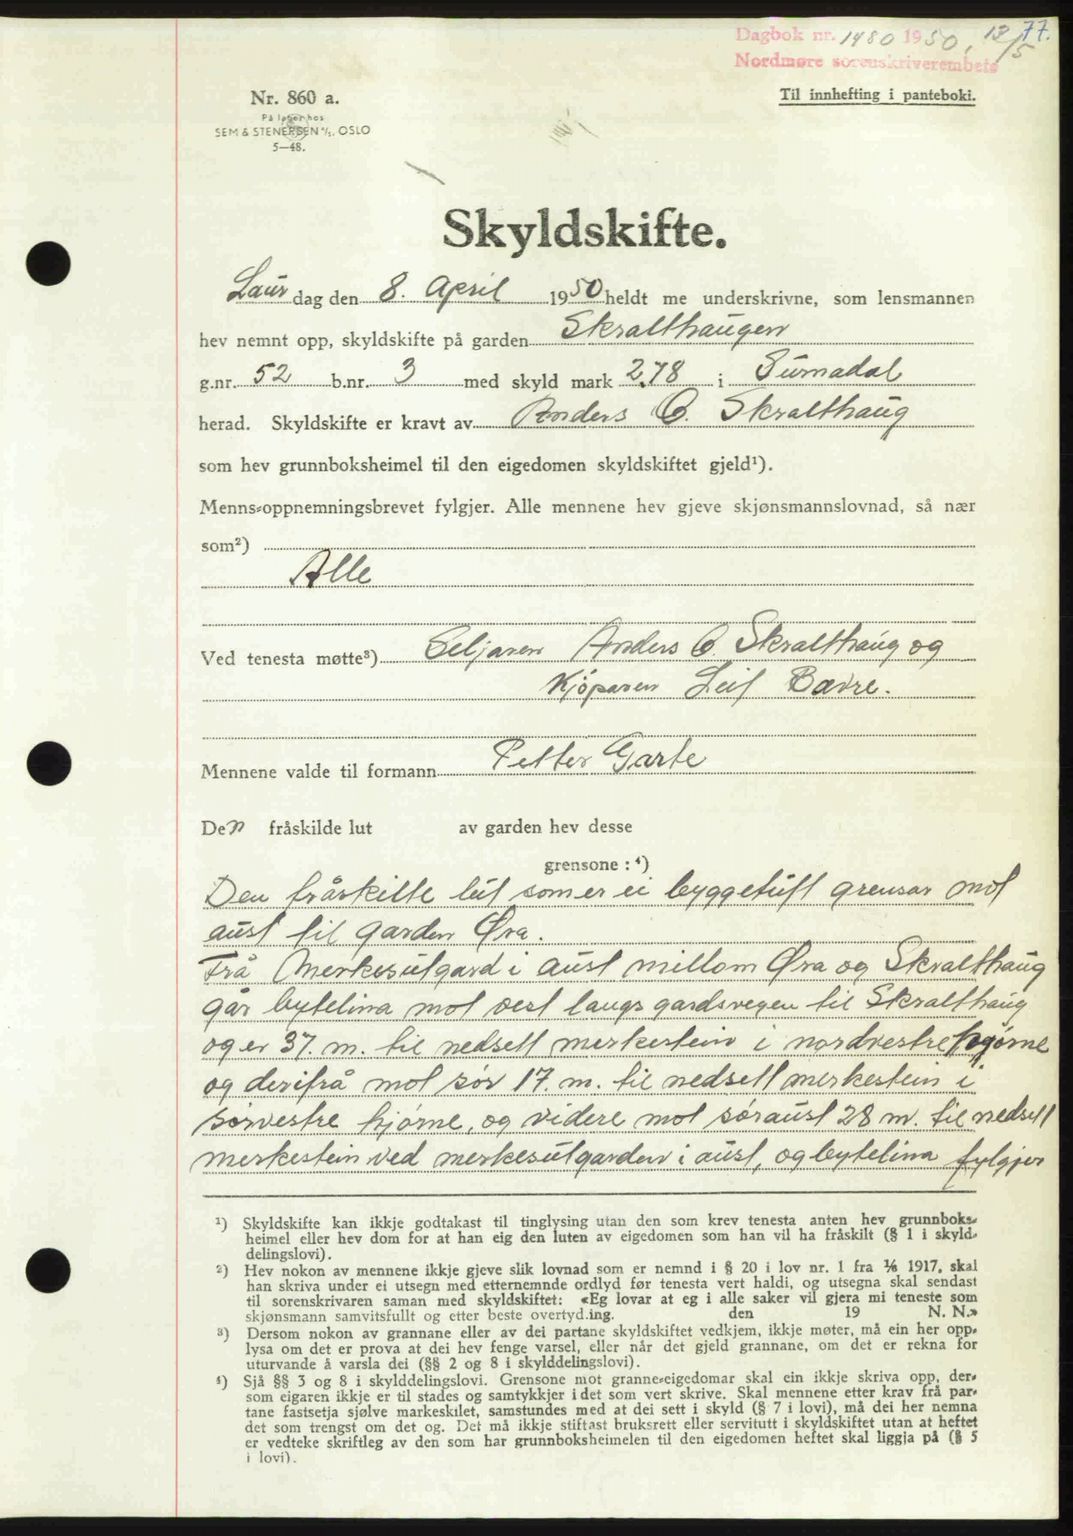 Dagbok nr. 1480 1950, 13/5 77.
Nordmøre sorenskriverembete
Nr. 860 a.
Til innhefting i panteboki.
På lager hos
SEM & STENERSEN A/S, OSLO
5—48.
Skyldskifte.
Laur dag den 8. April 1950 heldt me underskrivne, som lensmannen
hev nemnt opp, skyldskifte på garden Skralthaugen
g.nr. 52 b.nr. 3 med skyld mark 2.78 i Surnadal
herad. Skyldskifte er kravt av Anders O. Skralthaug
som hev grunnboksheimel til den eigedomen skyldskiftet gjeld¹).
Menns-oppnemningsbrevet fylgjer. Alle mennene hev gjeve skjønsmannslovnad, så nær
som²)
Alle
Ved tenesta møtte³) Seljaren Anders O. Skralthaug og
Kjöparen Leif Bævre.
Mennene valde til formann Petter Garte
Den fråskilde lut av garden hev desse
grensone : ⁴)
Den fråskilte lut som er ei byggetuft grensar mot
aust til garden Øra.
Frå Merkesutgard i aust millom Øra og Skralthaug
går bytelina mot vest langs gardsvegen til Skralthaug
og er 37. m. til nedsett merkestein i nordvestre hjørne
og derifrå mot sør 17. m. til nedsett merkestein i
sørvestre hjørne, og videre mot søraust 28 m. til nedsett
merkestein ved merkesutgarden i aust, og bytelina fylgjer
¹) Skyldskifte kan ikkje godtakast til tinglysing utan den som krev tenesta anten hev grunnboks-
heimel eller hev dom for at han eig den luten av eigedomen som han vil ha fråskilt (§ 1 i skyld-
delingslovi).
²) Hev nokon av mennene ikkje gjeve slik lovnad som er nemnd i § 20 i lov nr. 1 fra 1/6 1917, skal
han skriva under ei utsegn med etternemnde ordlyd før tenesta vert haldi, og utsegna skal sendast
til sorenskrivaren saman med skyldskiftet: «Eg lovar at eg i alle saker vil gjera mi teneste som
skjønsmann samvitsfullt og etter beste overtyding. den 19 N. N.»
³) Dersom nokon av grannane eller av dei partane skyldskiftet vedkjem, ikkje møter, må ein her opp-
lysa om det er prova at dei hev fenge varsel, eller når det gjeld grannane, om det er rekna for
uturvande å varsla dei (§§ 2 og 8 i skylddelingslovi).
⁴) Sjå §§ 3 og 8 i skylddelingslovi. Grensone mot granne-eigedomar skal ein ikkje skriva opp, der-
som eigaren ikkje er til stades og samtykkjer i det som vert skrive. Skal mennene etter krav frå par-
tane fastsetja sjølve markeskilet, samstundes med at dei sett i skyld (§ 7 i lovi), må dei her nemna
det som trengst om det og. Det må ikkje stiftast bruksrett eller servitutt i skyldskiftet utan at heftet
er vedteke skriftleg av den som har grunnboksheimelen til den eigedomen heftet skal liggja på (§ 5
i lovi).